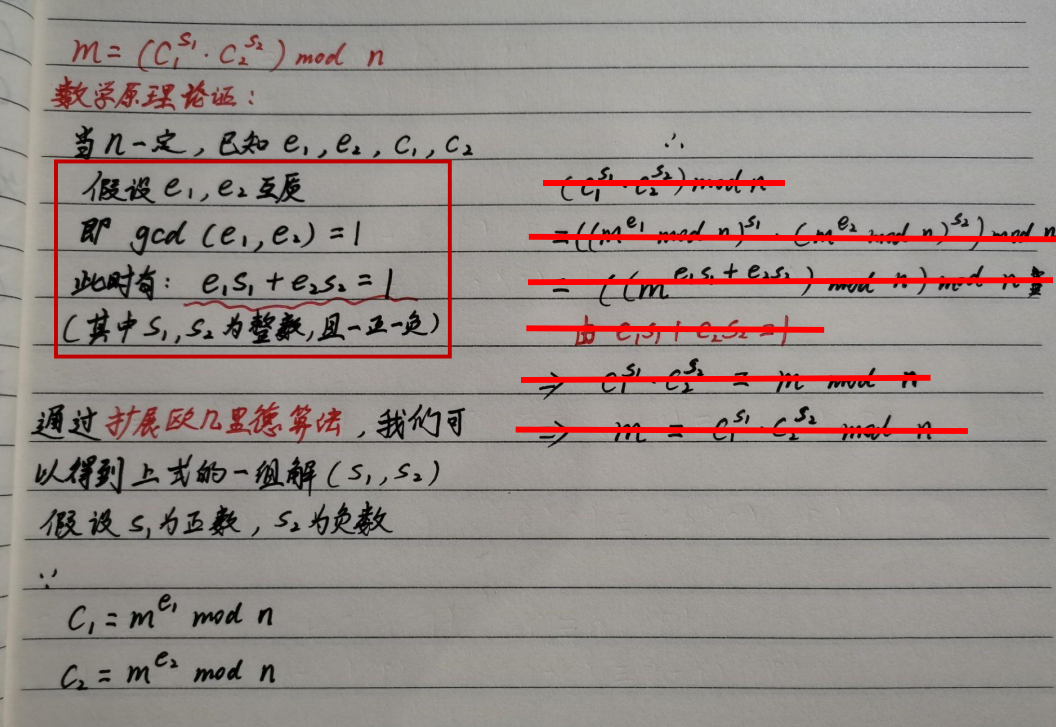 m = (C₁^S₁ · C₂^S₂) mod n
数学原理论证：
当n一定，已知 e₁, e₂, c₁, c₂
假设e₁, e₂互质
即 gcd (e₁, e₂) = 1
此时有： e₁s₁ + e₂s₂ = 1
(其中 s₁, s₂ 为整数，且一正一负)
通过扩展欧几里德算法，我们可
以得到上式的一组解 (s₁, s₂)
假设 s₁为正数，s₂为负数
∵
C₁ = m^e₁ mod n
C₂ = m^e₂ mod n
∴
(c₁^s₁ · c₂^s₂) mod n
= ((m^e₁ mod n)^s₁ · (m^e₂ mod n)^s₂) mod n
= ((m^e₁s₁ + e₂s₂) mod n) mod n
由 e₁s₁ + e₂s₂ = 1
⇒ c₁^s₁ · c₂^s₂ = m mod n
⇒ m = c₁^s₁ · c₂^s₂ mod n